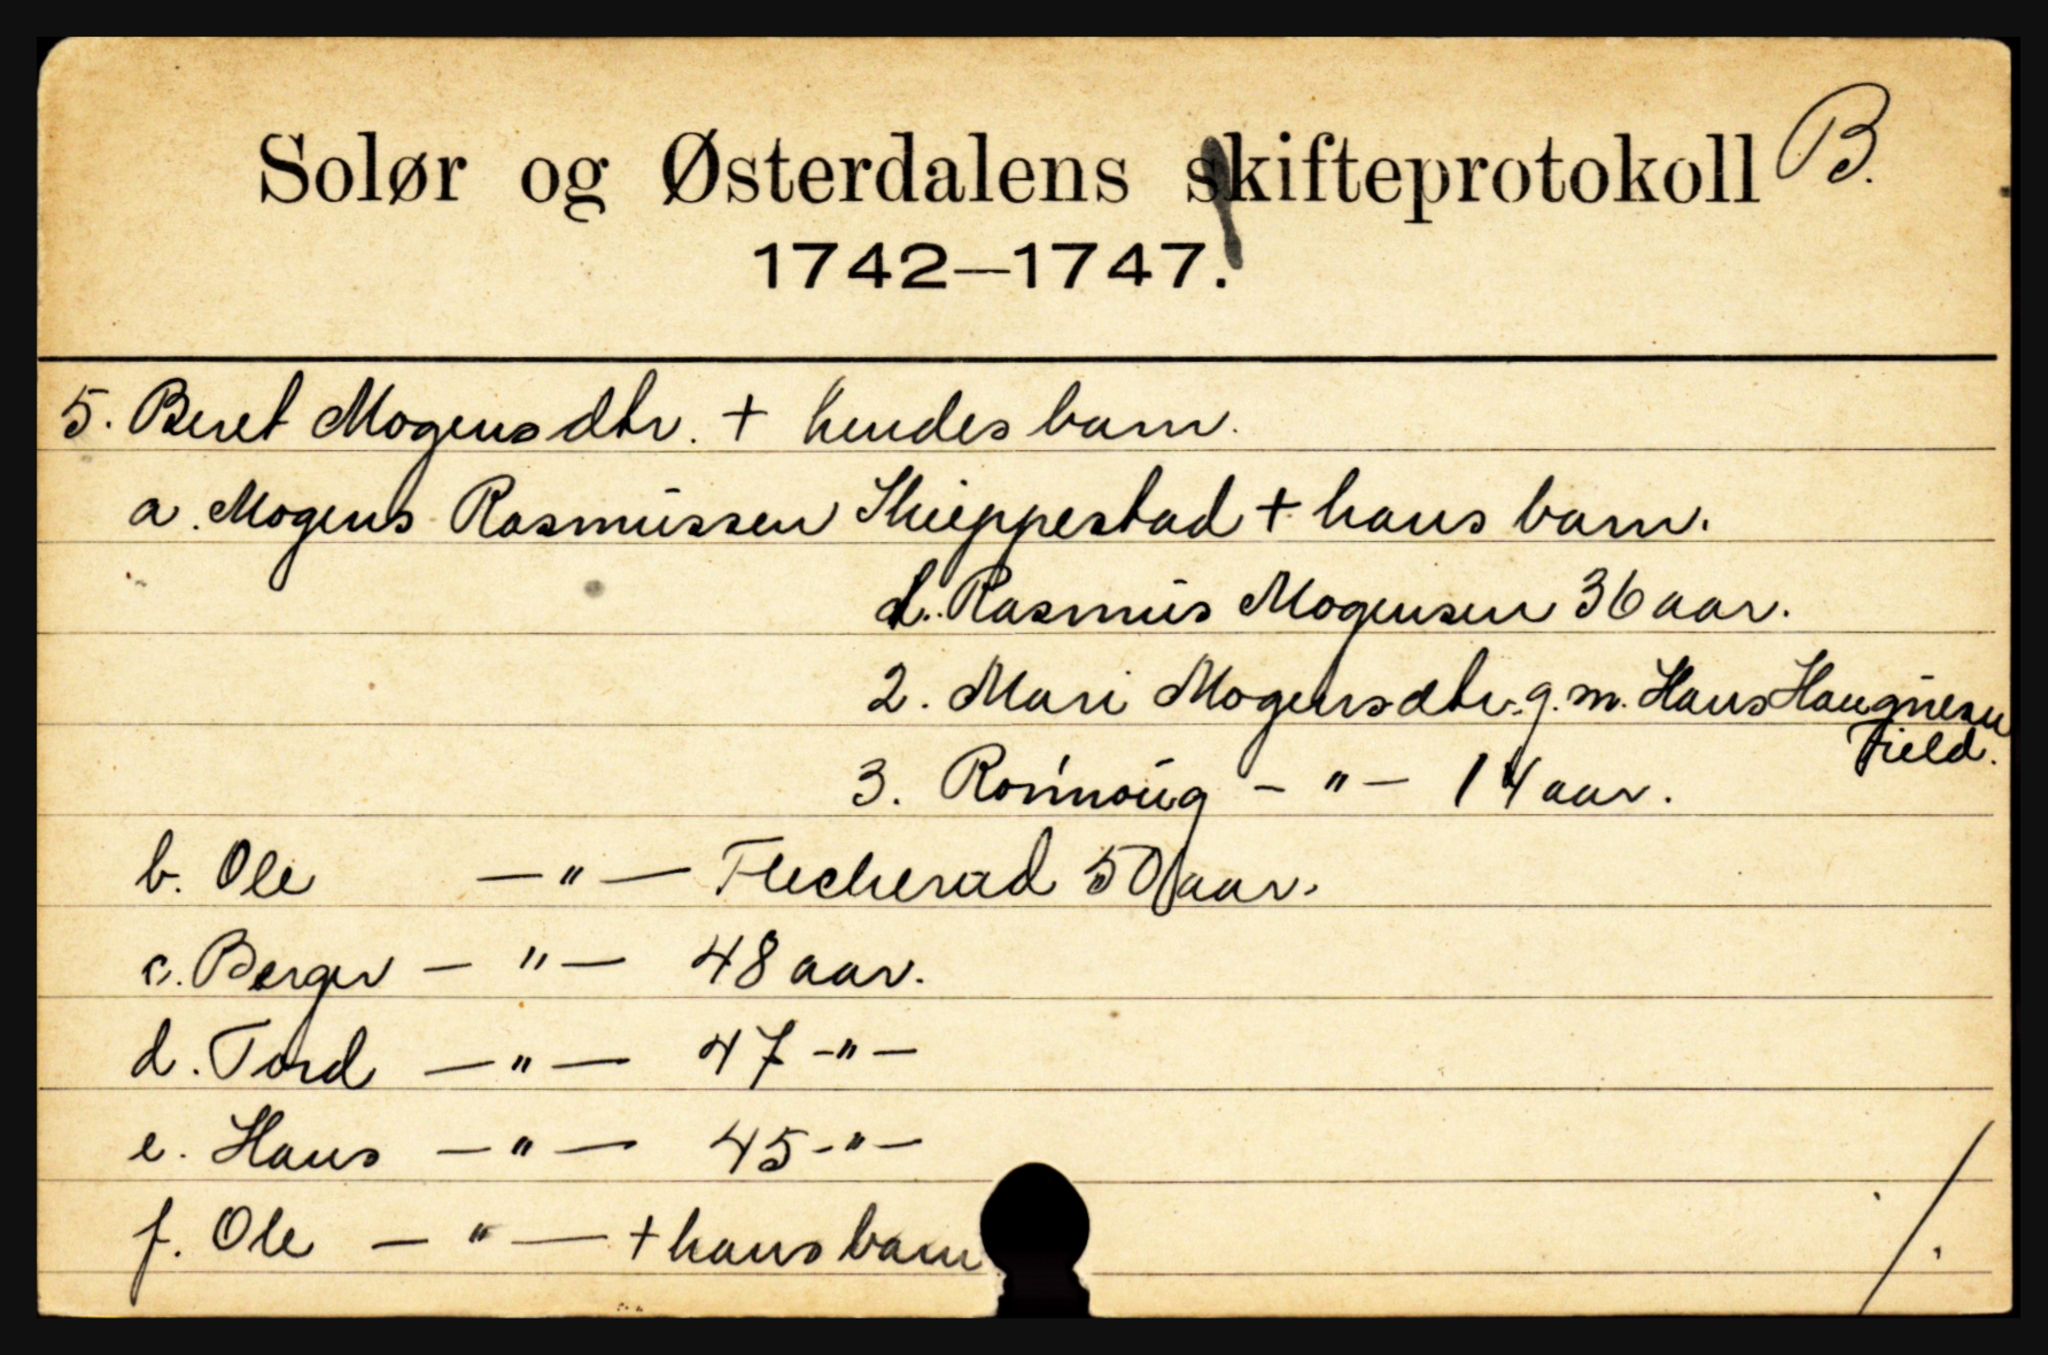 Solør og Østerdalens skifteprotokoll B.
1742—1747.
5. Beret Mogensdtr. + hendes barn.
a. Mogens Rasmüssen Skieppestad + hans barn.
1. Rasmüs Mogensen 36 aar.
2. Mari Mogensdtr. g. m. Hans Haugnesen
Field.
3. Ronnoüg - " - 14 aar.
b. Ole — " — Flecherud 50 aar.
c. Berger — " — 48 aar.
d. Tord — " — 47 - " -
e. Hans — " — 45 - " -
f. Ole — " — + hans barn
/.